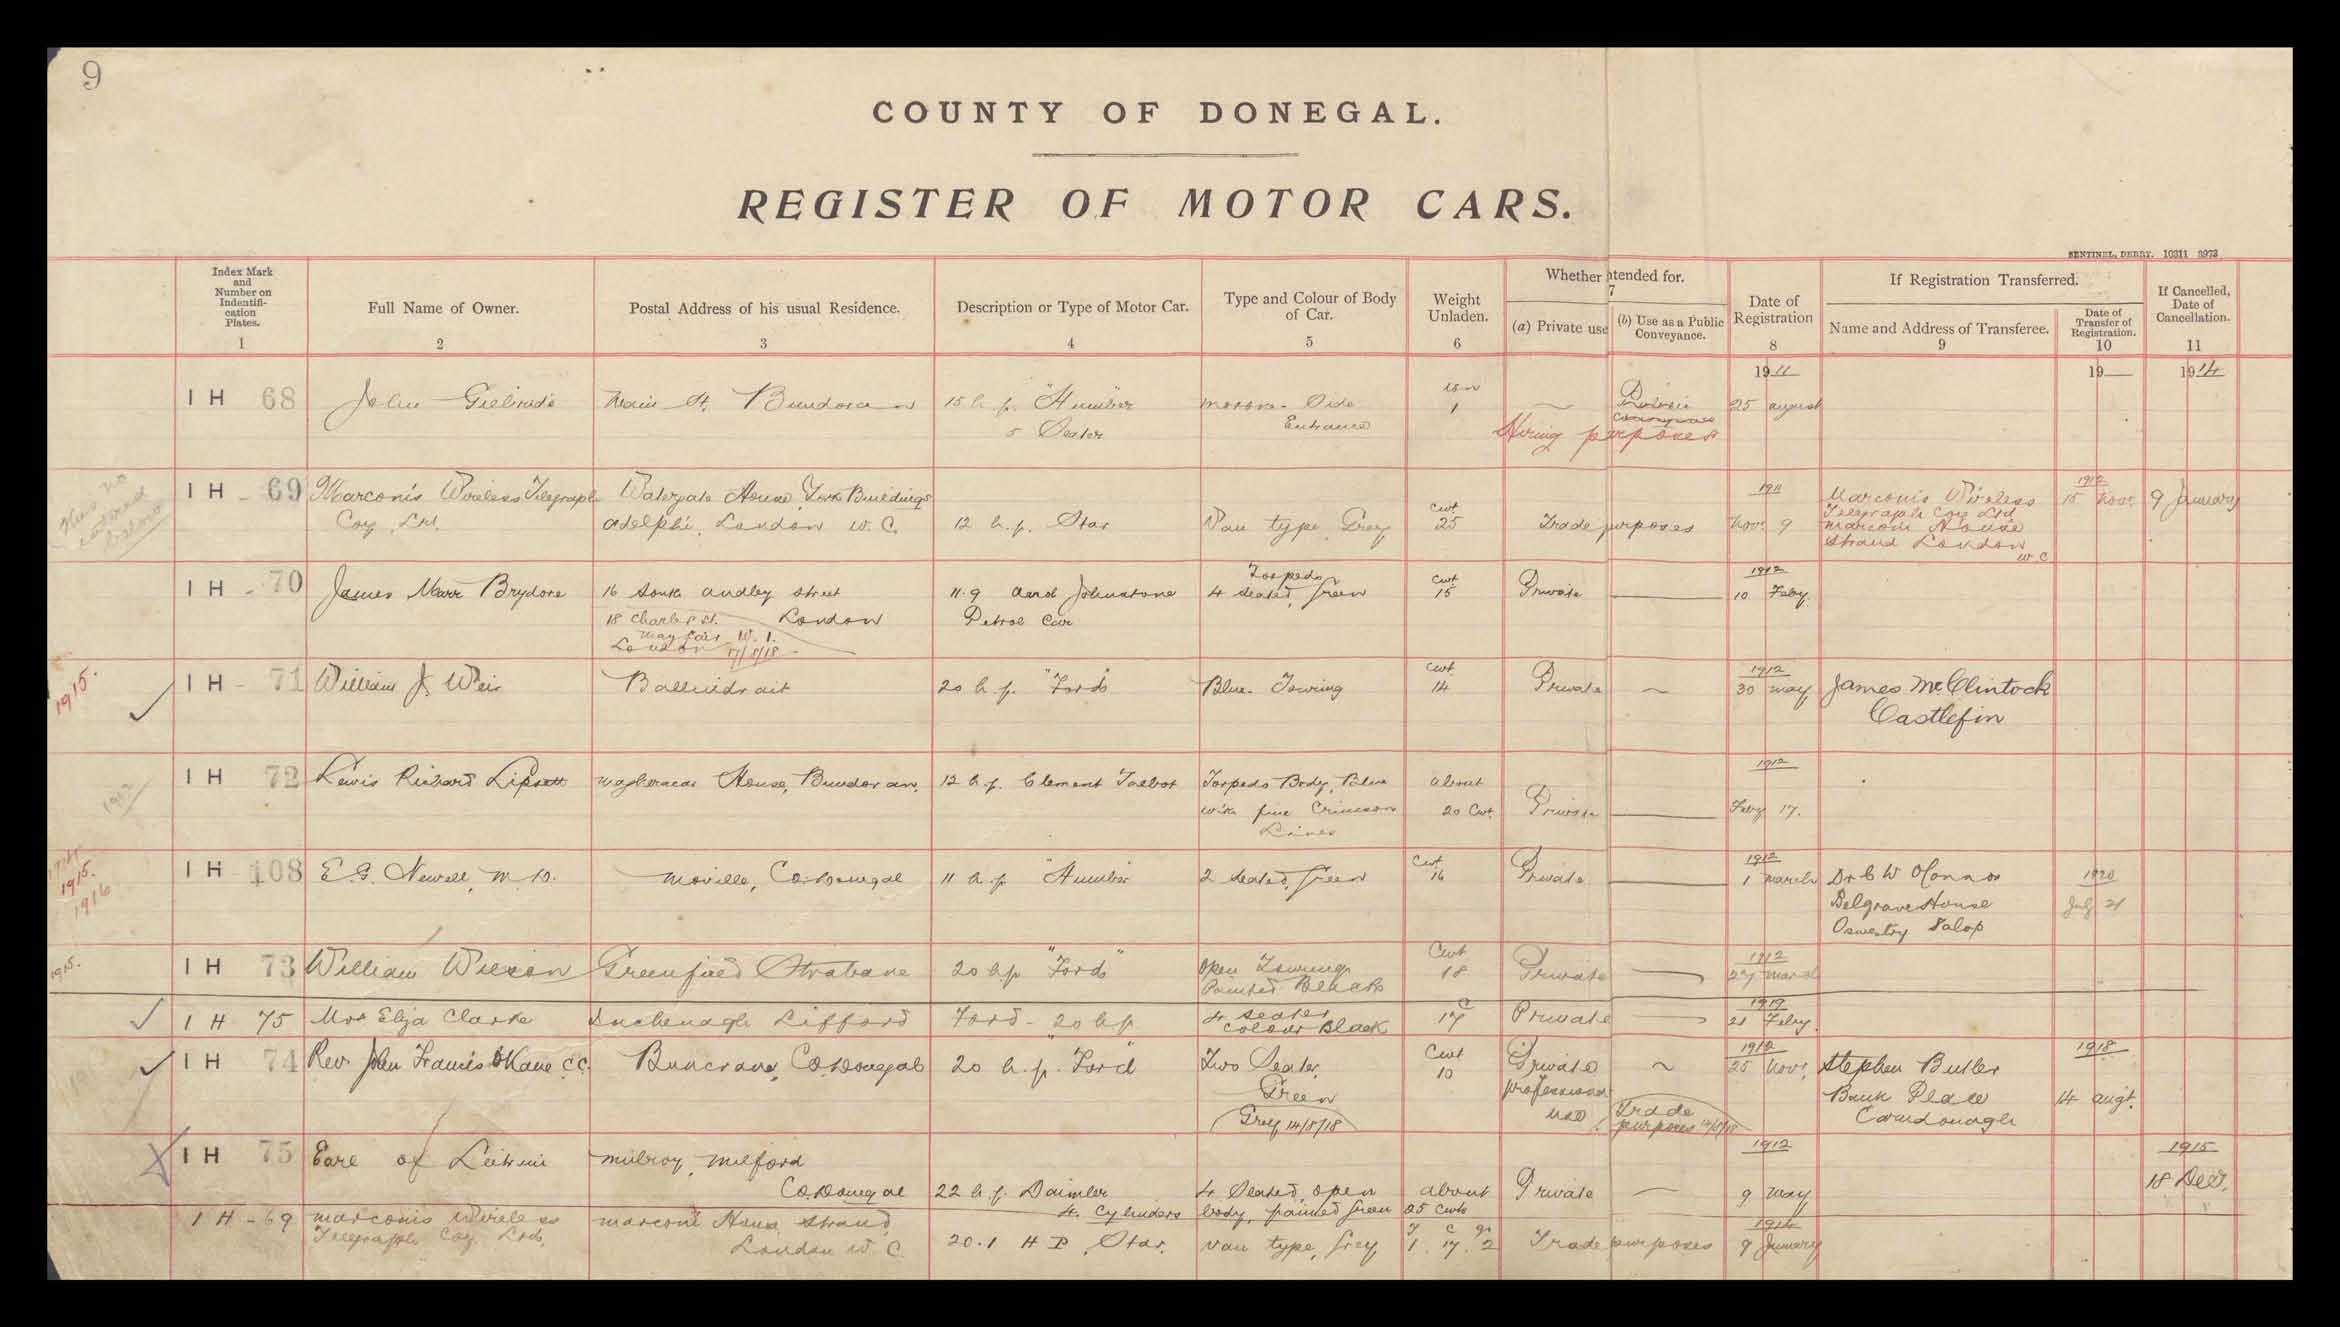 9
COUNTY OF DONEGAL.
REGISTER OF MOTOR CARS.
SENTINEL, DERRY. 10311 3973
Index Mark and Number on Indentifi-cation Plates. 1
Full Name of Owner. 2
Postal Address of his usual Residence. 3
Description or Type of Motor Car. 4
Type and Colour of Body of Car. 5
Weight Unladen. 6
Whether ntended for. 7
(a) Private use
(b) Use as a Public Conveyance.
Date of Registration 8
If Registration Transferred.
Name and Address of Transferee. 9
Date of Transfer of Registration. 10
If Cancelled, Date of Cancellation. 11
1911 19 1914
IH 68 John Main St. Bundoran 15 h.p. "Humber" Side 1 25 august
5 Seater Entrance Hiring purposes
IH - 69 Marconis Wireless Telegraph Watergate House, York Buildings 1911 Marconis Wireless 1912 15 Novr 9 January
Coy Ltd. adelphi, London W.C. 12 h.p. Star Van type, Grey Cwt 25 Trade purposes Novr 9 Telegraph Coy Ltd
Marconi House
Strand London
W.C
IH - 70 James Marr Brydone 16 South audley street 11.9 Johnstone Torpedo 4 seated, Green Cwt 15 Private 1912 10 Feby
18 Charles St. London Petrol Car
mayfair W.1.
London 17/5/18
1915. IH - 71 William J. Weir Ballindrait 20 h.p. "Ford" Blue. Touring Cwt. 14 Private 1912 30 may James McClintock
Castlefin
1912 IH 72 Lewis Richard Lipsett House, Bundoran, 12 h.p. Clement Talbot Torpedo Body, Blue about 1912
with fine Crimson 20 Cwt. Private Feby 17.
Lines
1915.
1916
IH 108 E.G. Newell, M.D. Moville, Co. Donegal 11 h.p. "Humber" 2 seated, Green Cwt. 16 Private 1912 1 march Dr C W OConnor 1920
Belgrave House July 21
Oswestry Salop
1915. IH 73 William Wilson Greenfield Strabane 20 hp "Ford" Open Touring Cwt 18 Private 1912 27 march
Painted Black
IH 75 Mrs Eliza Clarke Lifford Ford - 20 hp 4 seater C 17 Private 1919 21 Feby.
colour Black
IH 74 Rev. John Francis OKane C.C. Buncrana, Co. Donegal 20 h.p. "Ford" Two Seater. Cwt 10 Private 1912 25 Novr. Stephen Butler 1918
Green professional Bank Place 14 augt.
Grey 14/8/18 use Trade purposes 14/8/18 Carndonagh
IH 75 Earl of Leitrim mulroy, Milford 1912 1915
Co. Donegal 22 h.p. Daimler 4 Seated, open about Private 9 may 18 Decr.
4 Cylinders body, painted Green 25 Cwts
IH - 69 marconis Wireless marconi House Strand, T C qr 1914
Telegraph Coy. Ltd. London W.C. 20.1 H P, Star. Van type, Grey 1. 17. 2 Trade purposes 9 January